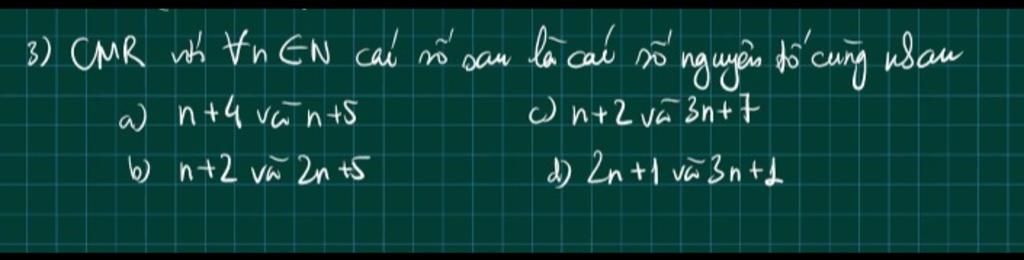 3) CMR với ∀n ∈ N các số sau là các số nguyên tố cùng nhau
a) n+4 và n+5 c) n+2 và 3n+7
b) n+2 và 2n+5 d) 2n+1 và 3n+1